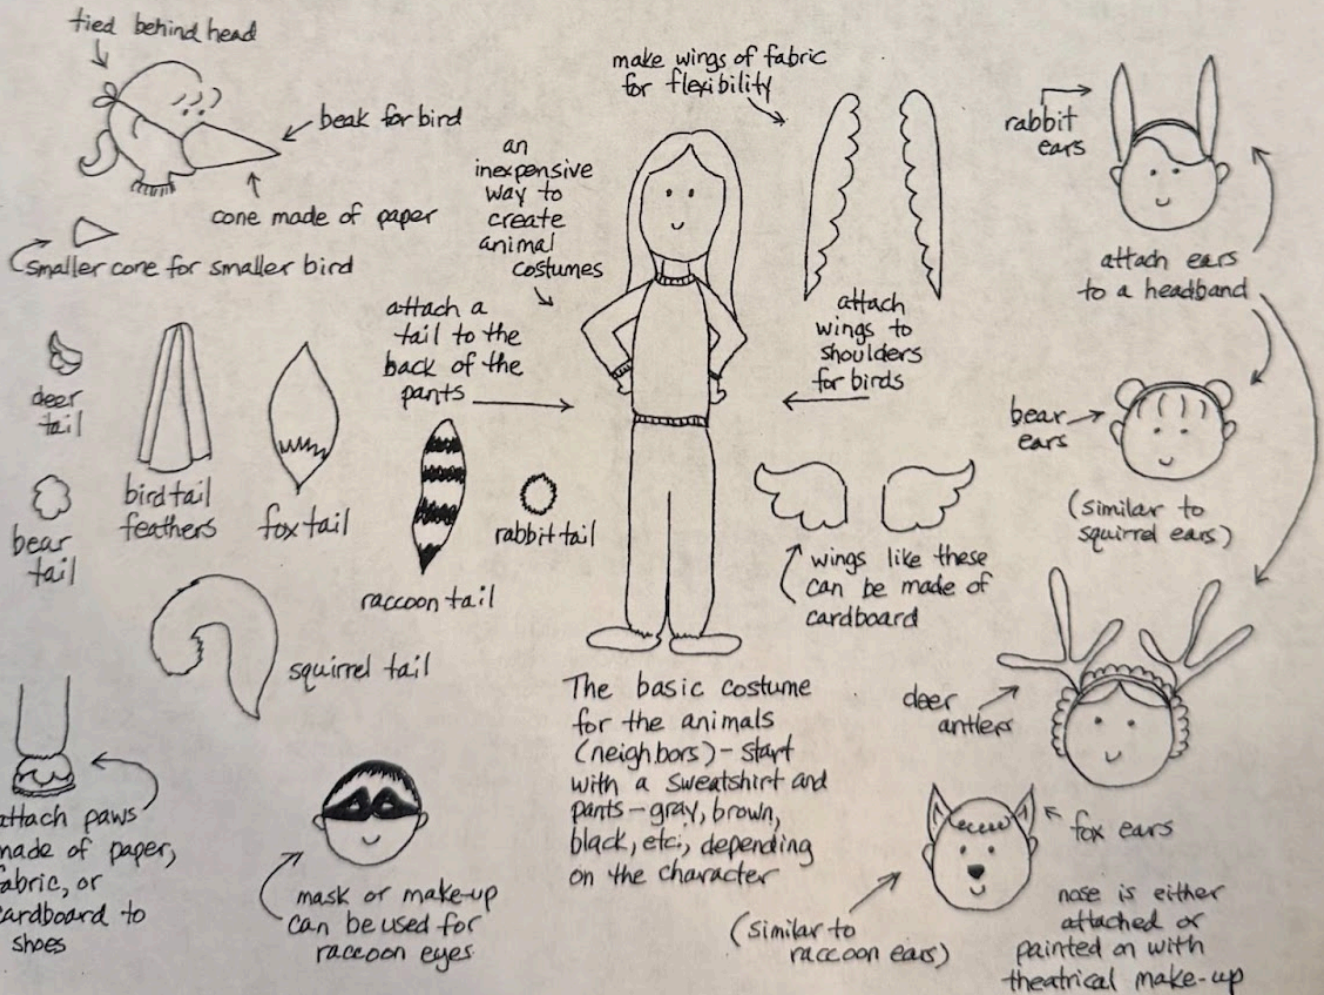 tied behind head
beak for bird
cone made of paper
smaller cone for smaller bird
an
inexpensive
way to
create
animal
costumes
make wings of fabric
for flexibility
rabbit
ears
attach ears
to a headband
attach a
tail to the
back of the
pants
attach
wings to
shoulders
for birds
deer
tail
bird tail
feathers
fox tail
bear
tail
raccoon tail
rabbit tail
squirrel tail
bear
ears
(similar to
squirrel ears)
wings like these
can be made of
cardboard
deer
antlers
The basic costume
for the animals
(neighbors) - start
with a sweatshirt and
pants - gray, brown,
black, etc., depending
on the character
attach paws
made of paper,
fabric, or
cardboard to
shoes
mask or make-up
can be used for
raccoon eyes
fox ears
(similar to
raccoon ears)
nose is either
attached or
painted on with
theatrical make-up